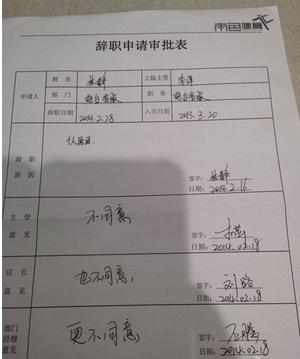 辞职申请审批表
姓名 上级主管
申请人 部门 前台客服 职务 前台客服
辞职日期 2014.2.28 入司日期 2013.3.20
辞职
原因
签字:
日期: 2014.2.16
主管
意见
不同意
签字:
日期: 2014.02.18
店长
意见
也不同意
签字:
日期: 2014.02.18
部门
经理
意见
更不同意
签字:
日期: 2014.02.18